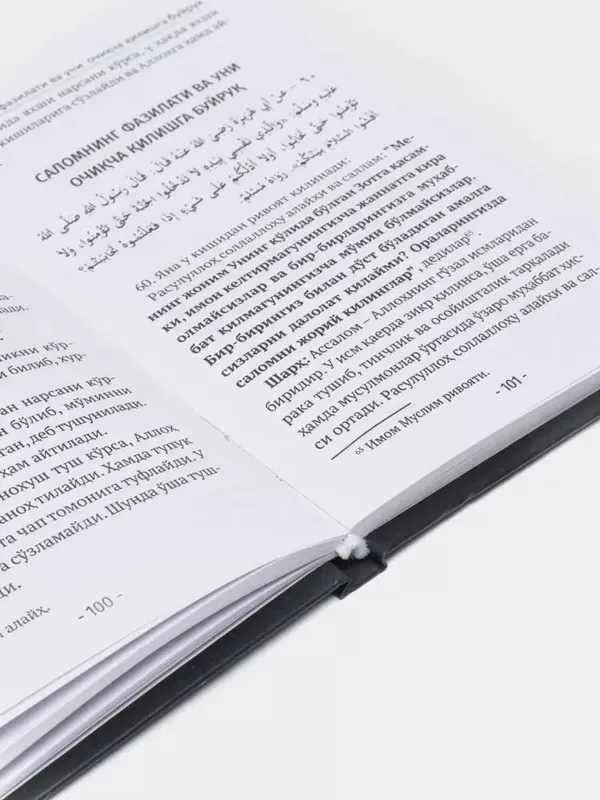 тикни кўр-
и билиб, хур-
ан нарсани кўр-
н бўлиб, мўминни
ган, деб тушунилади.
ҳам айтилади.
нохуш туш кўрса, Аллоҳ
аноҳ тилайди. Ҳамда тупук
та чап томонига туфлайди. у
а сўзламайди. Шунда ўша туш-
ди.
алайҳ.
- 100 -
фазилати ва уни очиқча қилишга буйруқ
ида яхши нарсани кўрса, у ҳақда яхши
кишиларига сўзлайди ва Аллоҳга ҳамд ай
САЛОМНИНГ ФАЗИЛАТИ ВА УНИ
ОЧИҚЧА ҚИЛИШГА БУЙРУҚ
٦٠ – عَنْ أَبِي هُرَيْرَةَ رَضِيَ اللهُ عَنْهُ قَالَ: قَالَ رَسُولُ اللهِ صَلَّى اللهُ
عَلَيْهِ وَسَلَّمَ: «وَالَّذِي نَفْسِي بِيَدِهِ لَا تَدْخُلُوا الْجَنَّةَ حَتَّى تُؤْمِنُوا، وَلَا
تُؤْمِنُوا حَتَّى تَحَابُّوا، أَوَلَا أَدُلُّكُمْ عَلَى شَيْءٍ إِذَا فَعَلْتُمُوهُ تَحَابَبْتُمْ؟
أَفْشُوا السَّلَامَ بَيْنَكُمْ». رَوَاهُ مُسْلِمٌ.
60. Яна у кишидан ривоят қилинади:
Расулуллоҳ соллаллоҳу алайҳи ва саллам: "Ме-
нинг жоним Унинг қўлида бўлган Зотга қасам-
ки, имон келтирмагунингизча жаннатга кира
олмайсизлар ва бир-бирларингизга муҳаб-
бат қилмагунингизча мўмин бўлмайсизлар.
Бир-бирингиз билан дўст бўладиган амалга
сизларни далолат қилайми? Ораларингизда
саломни жорий қилинглар", дедилар⁶⁵.
Шарҳ: Ассалом – Аллоҳнинг гўзал исмларидан
биридир, у исм қаерда зикр қилинса, ўша ерга ба-
рака тушиб, тинчлик ва осойишталик тарқалади
ҳамда мусулмонлар ўртасида ўзаро муҳаббат ҳис-
си ортади. Расулуллоҳ соллаллоҳу алайҳи ва сал-
⁶⁵ Имом Муслим ривояти.
- 101 -